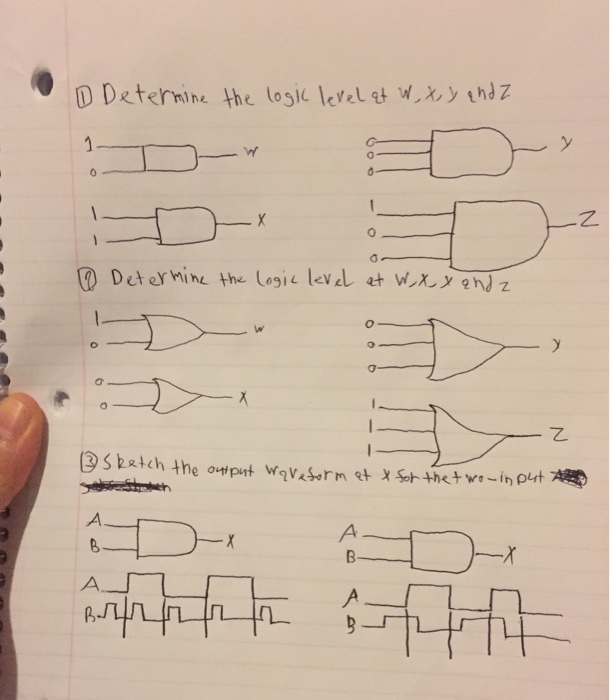 ① Determine the logic level at W, X, y and Z
1
0
W
0
0
0
y
1
1
X
1
0
0
Z
② Determine the logic level at W, X, y and z
1
0
w
0
0
0
y
0
0
X
1
1
1
Z
③ Sketch the output waveform at x for the two-input
A
B
X
A
B
X
A
B
A
B